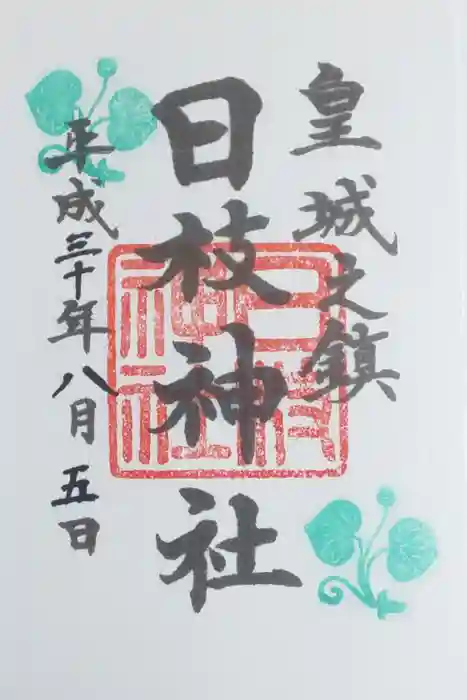 皇城之鎮
日枝神社
平成三十年八月五日
日枝神社